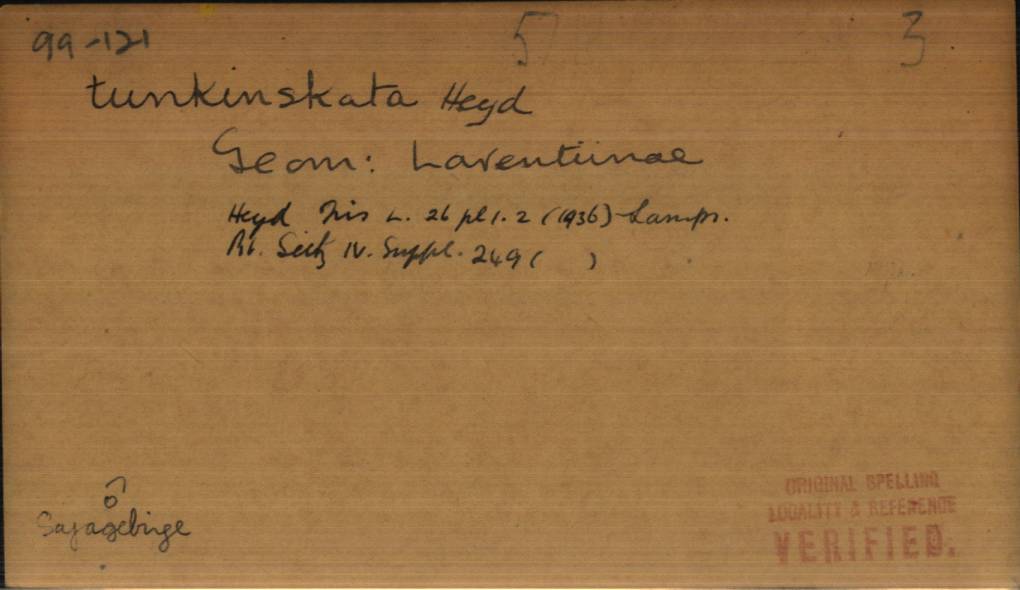 99-121 5 3
tunkinskata Heyd
Geom: Larentiinae
Heyd Iris L. 26 pl 1. 2 (1936) Lamps.
Pt. Seitz IV. Suppl. 249 ( )
♂
Sajagebirge
ORIGINAL SPELLING
LOCALITY & REFERENCE
VERIFIED.